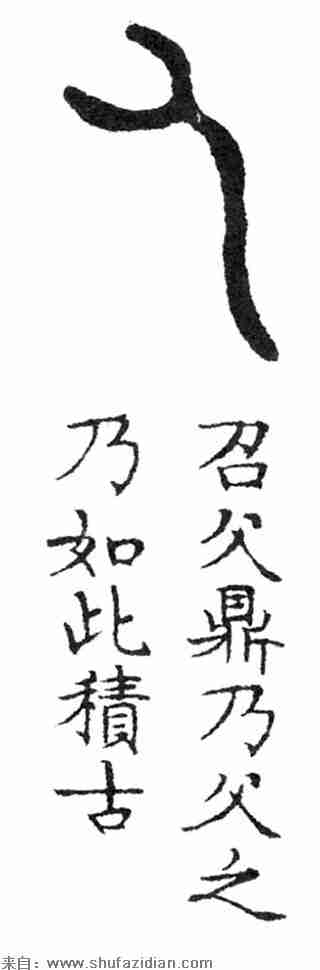 召父鼎乃父之
乃如此積古
来自：www.shufazidian.com